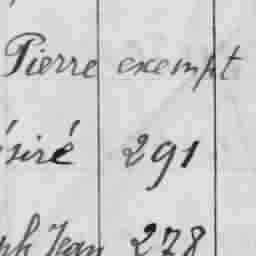 Pierre exempt
ésiré 291
ph Jean 278